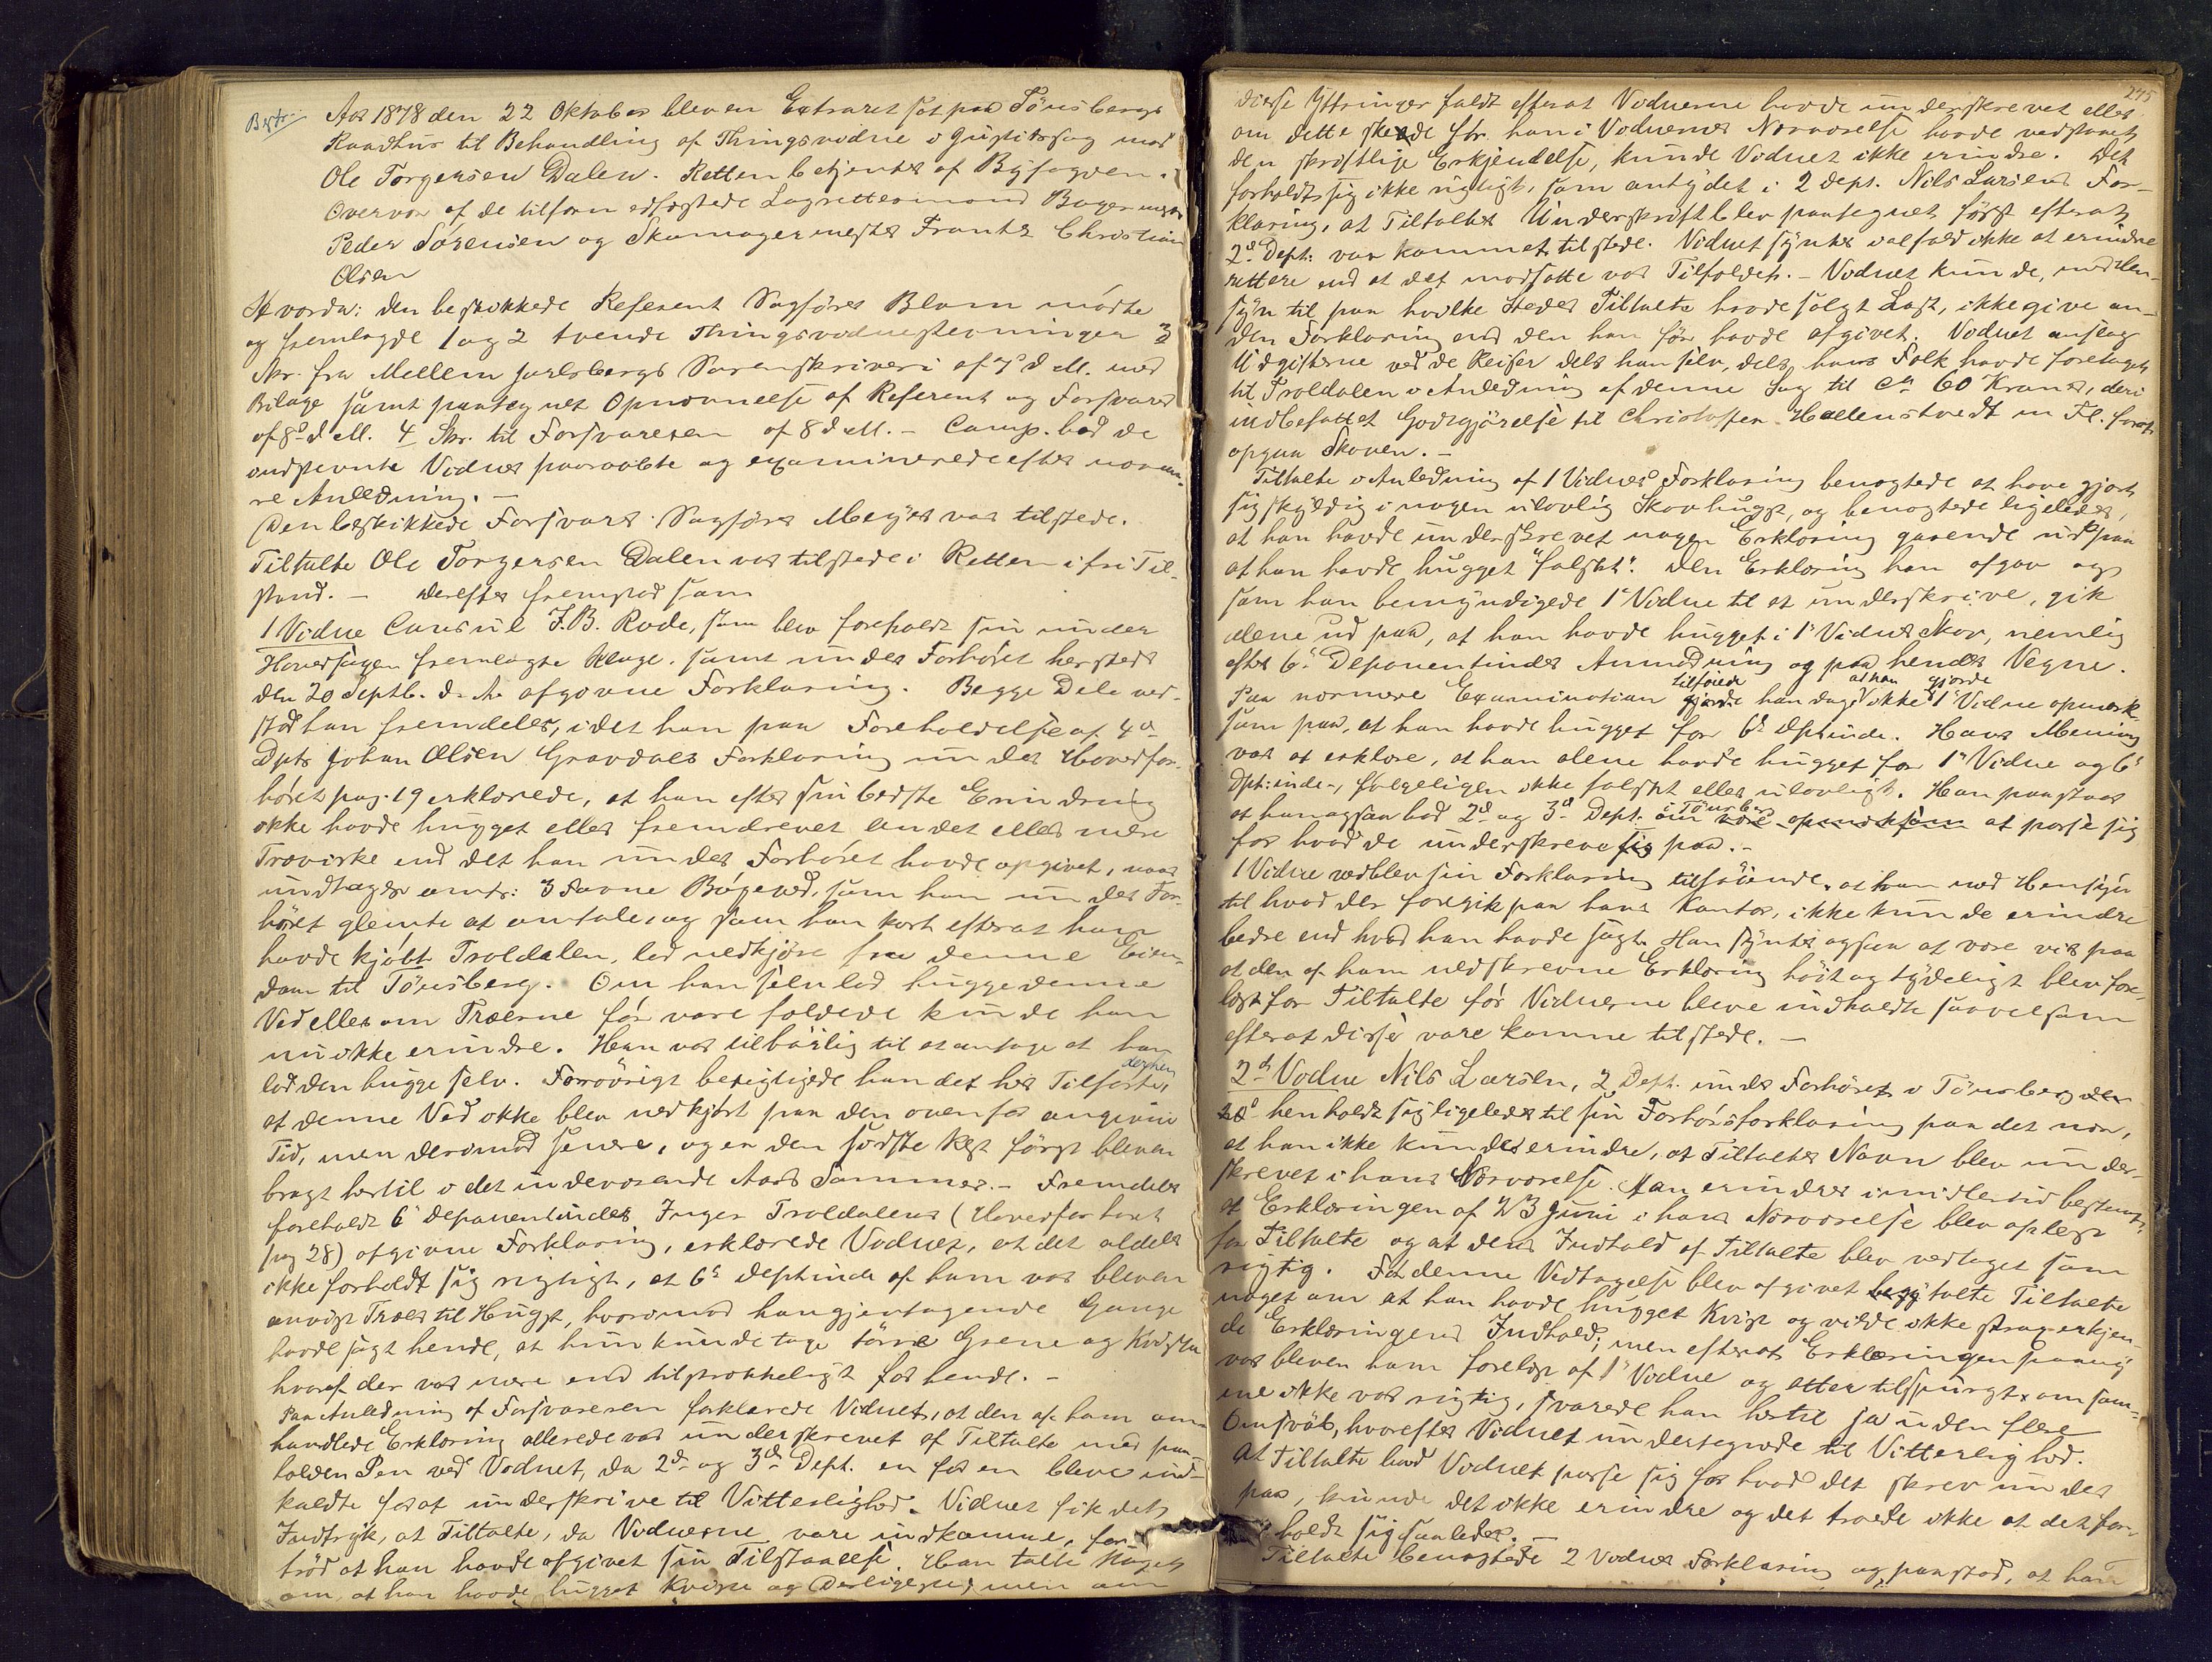 Bgstr.
Aar 1878 den 22 Oktober blev en Extraret sat paa Tönsbergs
Raadhus til Behandling af Thingsvidne i Justitssag mod
Ole Torgersen Dalen. Retten betjentes af Byfogden.
Overvær af de tilforn edfæstede Lagrettesmænd Bagermester
Peder Sörensen og Skomagermester Frantz Christian
Olsen
Hvorda: den beskikkede Referent Sagförer Blom mödte
og fremlagde 1 og 2 tvende Thingsvidnestevninger 3
Skr. fra Mellem Jarlsbergs Sorenskriveri af 7 d. M. med
Bilage samt paategnet Opnævnelse af Referent og Forsvarer
af 8 d M. 4 Skr. til Forsvareren af 8 d M. - Comp. bad de
indstevnte Vidner paaraabte og examinerede efter nærme-
re Anledning. -
Den beskikkede Forsvarer Sagförer Meyer var tilstede.
Tiltalte Ole Torgersen Dalen var tilstede i Retten i fri Til-
stand. - Derefter fremstod som
1 Vidne Consul J.B. Rode, som blev foreholdt sin under
Hovedsagen fremlagte Klage samt under Forhöret her stede
den 20 Septb. d. A. afgivne Forklaring. Begge Dele ved-
stod han fremdeles, idet han paa Foreholdelse af 4de
Dpts Johan Olsen Gravdals Forklaring under Hovedfor-
höret pag. 19 erklærede, at han efter sin bedste Erindring
ikke havde hugget eller fremdrevet andet eller mere
Trævirke end det han under Forhöret havde opgivet, naar
undtages omtr: 3 Favne Bögeved, som han under For-
höret glemte at omtale, og som han kort efterat han
havde kjöbt Troldalen, lod nedkjöre fra denne Eien-
dom til Tönsberg. Om han selv lod hugge denne
Ved eller om Træerne för vare fældede kunde han
nu ikke erindre. Han var tilböielig til at antage at han
lod den hugge selv. Forövrigt berigtigede han det her Tilförte, derhen
at denne Ved ikke blev nedkjört paa den ovenfor angivne
Tid, men derimod senere, og er den sidste Rest först bleven
bragt hertil i det indeværende Aars Sommer. - Fremdeles
foreholdt 6 Deponentindes Inger Troldalens (Hovedforhöret
pag 28) afgivne Forklaring, erklærede Vidnet, at det aldeles
ikke forholdt sig rigtigt, at 6te Deptinde af ham var bleven
anvist Træer til Hugst, hvorimod han gjentagende Gange
havde sagt hende, at hun kunde tage törre Grene og Kviste
hvoraf der var mere end tilstrækkeligt for hende. -
Paa Anledning af Forsvareren forklarede Vidnet, at den af ham om-
handlede Erklæring allerede var underskrevet af Tiltalte med paa-
holden Pen ved Vidnet, da 2de og 3de Dept. en for en bleve ind-
kaldte for at underskrive til Vitterlighed. Vidnet fik det
Indtryk, at Tiltalte, da Vidnerne vare indkomne, for-
tröd at han havde afgivet sin Tilstaaelse. Han talte Noget
om, at han havde hugget Kviste og Desligeste, men om
245
disse Yttringer faldt efterat Vidnerne havde underskrevet eller
om dette skede för han i Vidnernes Nærværelse havde vedstaaet
den skriftlige Erkjendelse, kunde Vidnet ikke erindre. Det
forholdt sig ikke rigtigt, som antydet i 2 Dept. Nils Larsens For-
klaring, at Tiltaltes Underskrift blev paategnet först efterat
2de Dept: var kommet tilstede. Vidnet syntes ialfald ikke at erindre
rettere end at det modsatte var Tilfældet. - Vidnet kunde, med Hen-
syn til paa hvilke Steder Tiltalte havde solgt Last, ikke give an-
den Forklaring end den han för havde afgivet. Vidnet anslog
Udgifterne ved de Reiser dels han selv, dels hans Folk havde foretaget
til Troldalen i Anledning af denne Sag til Ca 60 Kroner, deri
indbefattet Godtgjörelse til Christoffer Hallenstvedt m Fl. for at
opgaa Skoven. -
Tiltalte i Anledning af 1 Vidnes Forklaring benegtede at have gjort
sig skyldig i nogen ulovlig Skovhugst, og benegtede ligeledes,
at han havde underskrevet nogen Erklæring gaaende ud paa
at han havde hugget "falskt". Den Erklæring han afgav og
som han bemyndigede 1ste Vidne til at underskrive, gik
alene ud paa, at han havde hugget i 1ste Vidnes Skov, nemlig
efter 6te Deponentindes Anmodning og paa hendes Vegne.
Paa nærmere Examination tilföiede gjorde han dog at han ikke gjorde 1ste Vidne opmærk-
som paa, at han havde hugget for 6te Dptinde. Hans Mening
var at erklære, at han alene havde hugget for 1ste Vidne og 6te
Dpt:inde, fölgeligen ikke falskt eller ulovligt. Han paastaar
at han ogsaa bad 2de og 3de Dept. i Tönsberg om være opmærksom at passe sig
for hvad de underskreve sig paa. -
1 Vidne vedblev sin Forklaring tilföiende, at han med Hensyn
til hvad der foregik paa hans Kontor, ikke kunde erindre
bedre end hvad han havde sagt. Han syntes ogsaa at være vis paa
at den af ham nedskrevne Erklæring höit og tydeligt blev fore-
læst for Tiltalte för Vidnerne bleve indkaldte saavelsom
efterat disse vare komne tilstede. -
2det Vidne Nils Larsen, 2 Dept. under Forhöret i Tönsberg den
20de henholdt sig ligeledes til sin Forhörsforklaring paa det nær,
at han ikke kunde erindre, at Tiltaltes Navn blev under-
skrevet i hans Nærværelse. Han erindrer imidlertid bestemt,
at Erklæringen af 23 Juni i hans Nærværelse blev oplæst
for Tiltalte og at dens Indhold af Tiltalte blev vedtaget som
rigtig. Før denne Vedtagelse blev afgivet talte Tiltalte
noget om at han havde hugget Kvist og vilde ikke strax erkjen-
de Erklæringens Indhold; men efterat Erklæringen paany
var bleven ham forelæst af 1ste Vidne og atter tilspurgt, om sam-
me ikke var rigtig, svarede han hertil ja uden flere
Omsvöb, hvorefter Vidnet undertegnede til Vitterlighed.
At Tiltalte bad Vidnet passe sig for hvad det skrev under
paa, kunde det ikke erindre og det troede ikke at det for-
holdt sig saaledes. -
Tiltalte benegtede 2 Vidnes Forklaring og paastod, at han